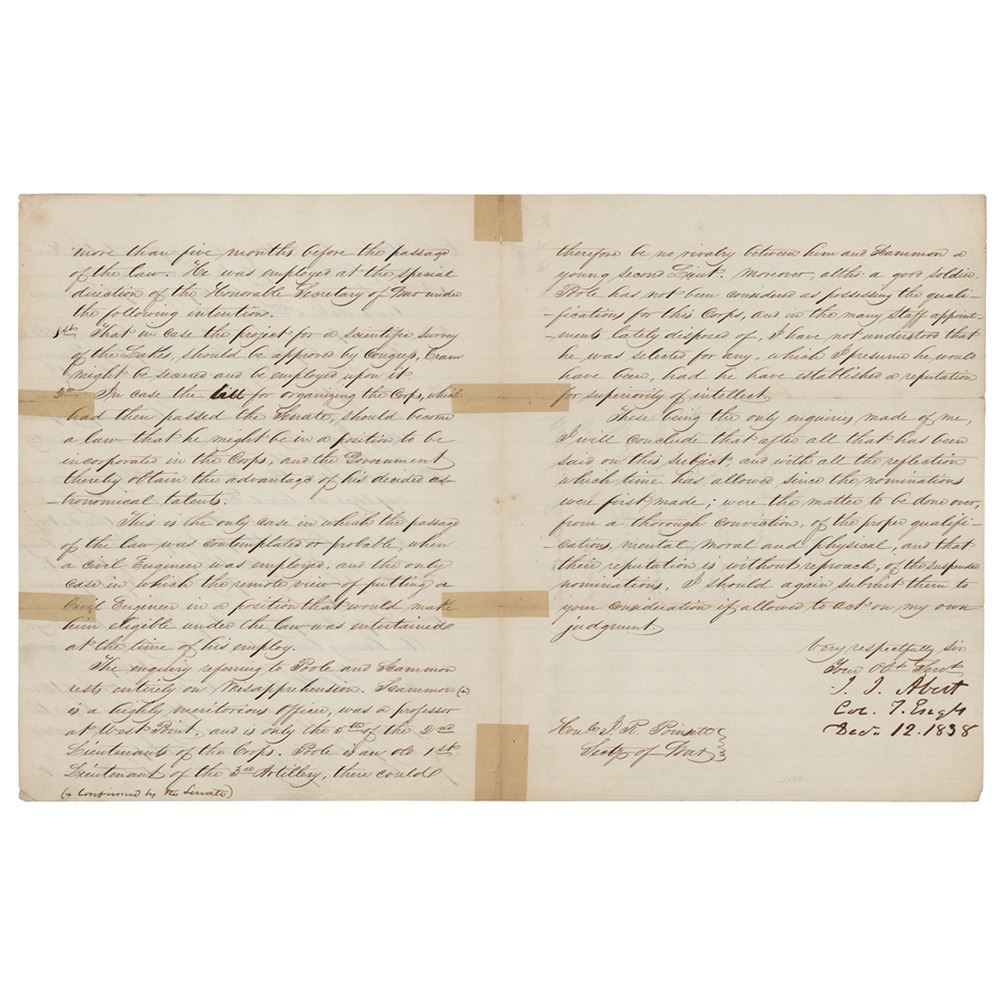 more than five months before the passage
of the law. He was employed at the special
direction of the Honorable Secretary of War under
the following intentions.
1st That in case the project for a scientific survey
of the Lakes, should be approved by Congress, Cram
might be secured and be employed upon it.
2nd In case the bill for organizing the Corps, which
had then passed the Senate, should become
a law that he might be in a position to be
incorporated in the Corps, and the Government
thereby obtain the advantage of his decided as-
-tronomical talents.
This is the only case in which the passage
of the law was contemplated or probable, when
a civil Engineer was employed, and the only
case in which the remote view of putting a
Civil Engineer in a position that would make
him eligible under the law was entertained
at the time of his employ.
The enquiry referring to Poole and Scammon
rests entirely on misapprehension. Scammon (+)
is a highly meritorious office, was a professor
at West Point, and is only the 5th of the 2nd
Lieutenants of the Corps. Poole is an old 1st
Lieutenant of the 3rd Artillery, there could
(+ Confirmed by the Senate)
therefore be no rivalry between him and Scammon a
young second Lieut. Moreover, altho a good soldier
Poole has not been considered as possessing the quali-
-fications for this Corps, and in the many staff appoint-
-ments lately disposed of, I have not understood that
he was selected for any, which I presume he would
have been, had he have established a reputation
for superiority of intellect.
These being the only enquiries, made of me,
I will conclude that after all that has been
said on this subject, and with all the reflection
which time has allowed since the nominations
were first made; were the matter to be done over,
from a thorough conviction, of the proper qualifi-
-cations, mental moral and physical, and that
their reputation is without reproach, of the suspended
nominations, I should again submit them to
your consideration if allowed to act on my own
judgment.
Very respectfully sir
Your Obt. Servt.
J. J. Abert
Col. T. Engrs
Decr. 12. 1838
Honble J. R. Poinsett
Secty of War